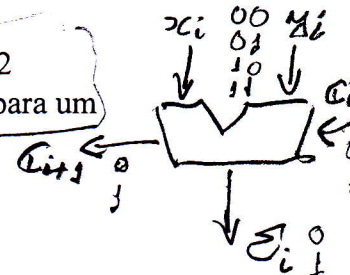 2
para um
xi 00 yi
01
10
11
Ci
Ci+1 0
1
Σi 0
1